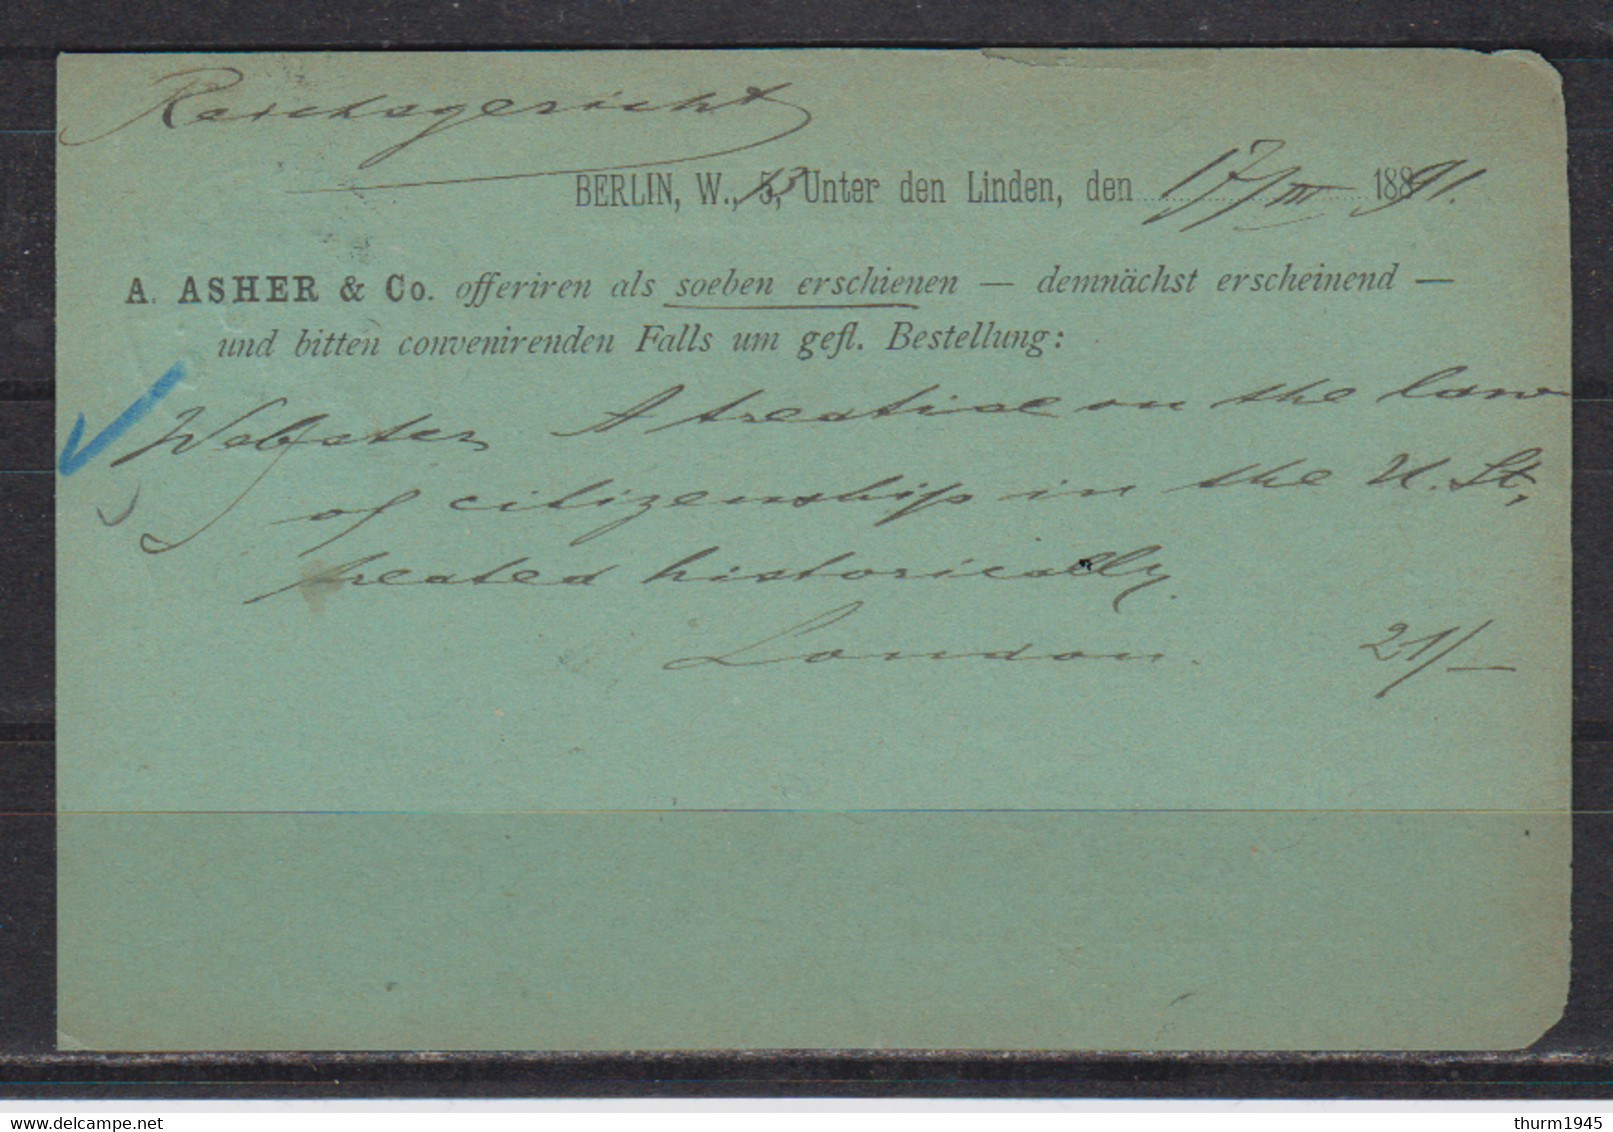 Reichsgericht
BERLIN, W., 13, Unter den Linden, den 17/III 1891.
A. ASHER & Co. offeriren als soeben erschienen — demnächst erscheinend —
und bitten convenirenden Falls um gefl. Bestellung:
Webster, A treatise on the law
of citizenship in the U. St.,
treated historically.
London. 21/—
delcampe.net
thurm1945